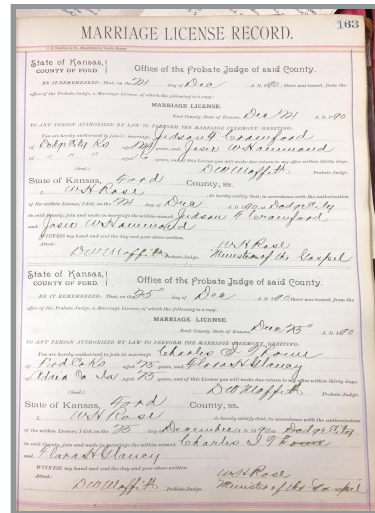 163
MARRIAGE LICENSE RECORD.
State of Kansas, COUNTY OF FORD. Office of the Probate Judge of said County.
BE IT REMEMBERED: That, on the 24 day of Dec A. D. 1890, there was issued, from the
office of the Probate Judge, a Marriage License, of which the following is a copy:
MARRIAGE LICENSE.
Ford County, State of Kansas, Dec 24 A. D. 1890
TO ANY PERSON AUTHORIZED BY LAW TO PERFORM THE MARRIAGE CEREMONY, GREETING:
You are hereby authorized to join in marriage Judson G Crawford
of Dodge City Ks aged 24 years, and Josie W Hammond
of " " " aged years, and of this License you will make due return to my office within thirty days.
(Seal.) D W Moffitt Probate Judge.
State of Kansas, Ford County, ss.
I, W H Rose do hereby certify, that in accordance with the authorization
of the within License, I did, on the 24 day of Dec A. D. 1890 at Dodge City
in said County, join and unite in marriage the within named Judson G Crawford
and Josie W Hammond
WITNESS my hand and seal the day and year above written.
Attest: W H Rose
D W Moffitt Probate Judge. Minister of the Gospel
State of Kansas, COUNTY OF FORD. Office of the Probate Judge of said County.
BE IT REMEMBERED: That, on the 25" day of Dec A. D. 1890, there was issued, from the
office of the Probate Judge, a Marriage License, of which the following is a copy:
MARRIAGE LICENSE.
Ford County, State of Kansas, Dec 25" A. D. 1890
TO ANY PERSON AUTHORIZED BY LAW TO PERFORM THE MARRIAGE CEREMONY, GREETING:
You are hereby authorized to join in marriage Charles I
of Ford Co Ks aged 25 years, and Clara H Glancy
of Co Ia aged years, and of this License you will make due return to my office within thirty days.
(Seal.) D W Moffitt Probate Judge.
State of Kansas, Ford County, ss.
I, W H Rose do hereby certify, that in accordance with the authorization
of the within License, I did, on the 25 day of December A. D. 1890 at Dodge City
in said County, join and unite in marriage the within named Charles I
and Clara H Glancy
WITNESS my hand and seal the day and year above written.
Attest: W H Rose
D W Moffitt Probate Judge. Minister of the Gospel